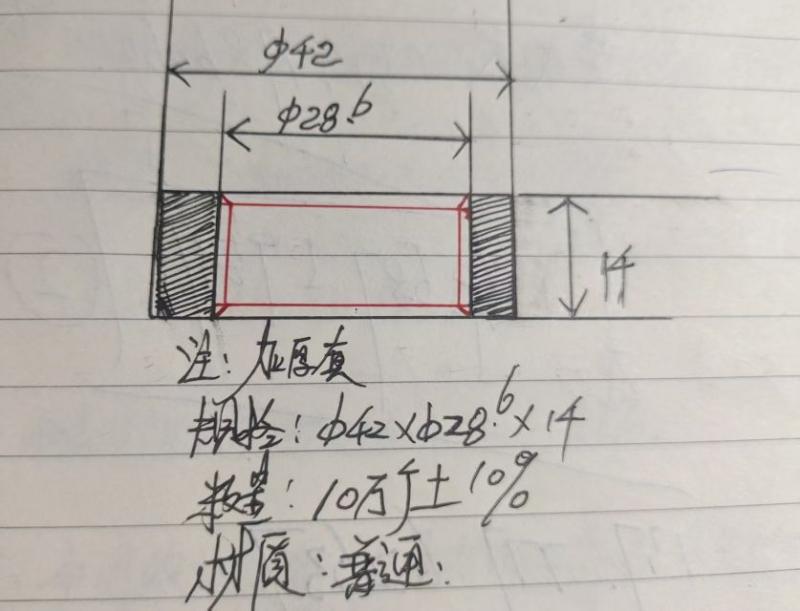 φ42
φ28.6
14
注: 加厚真
规格: φ42×φ28.6×14
数量: 10万斤±10%
材质: 普通.